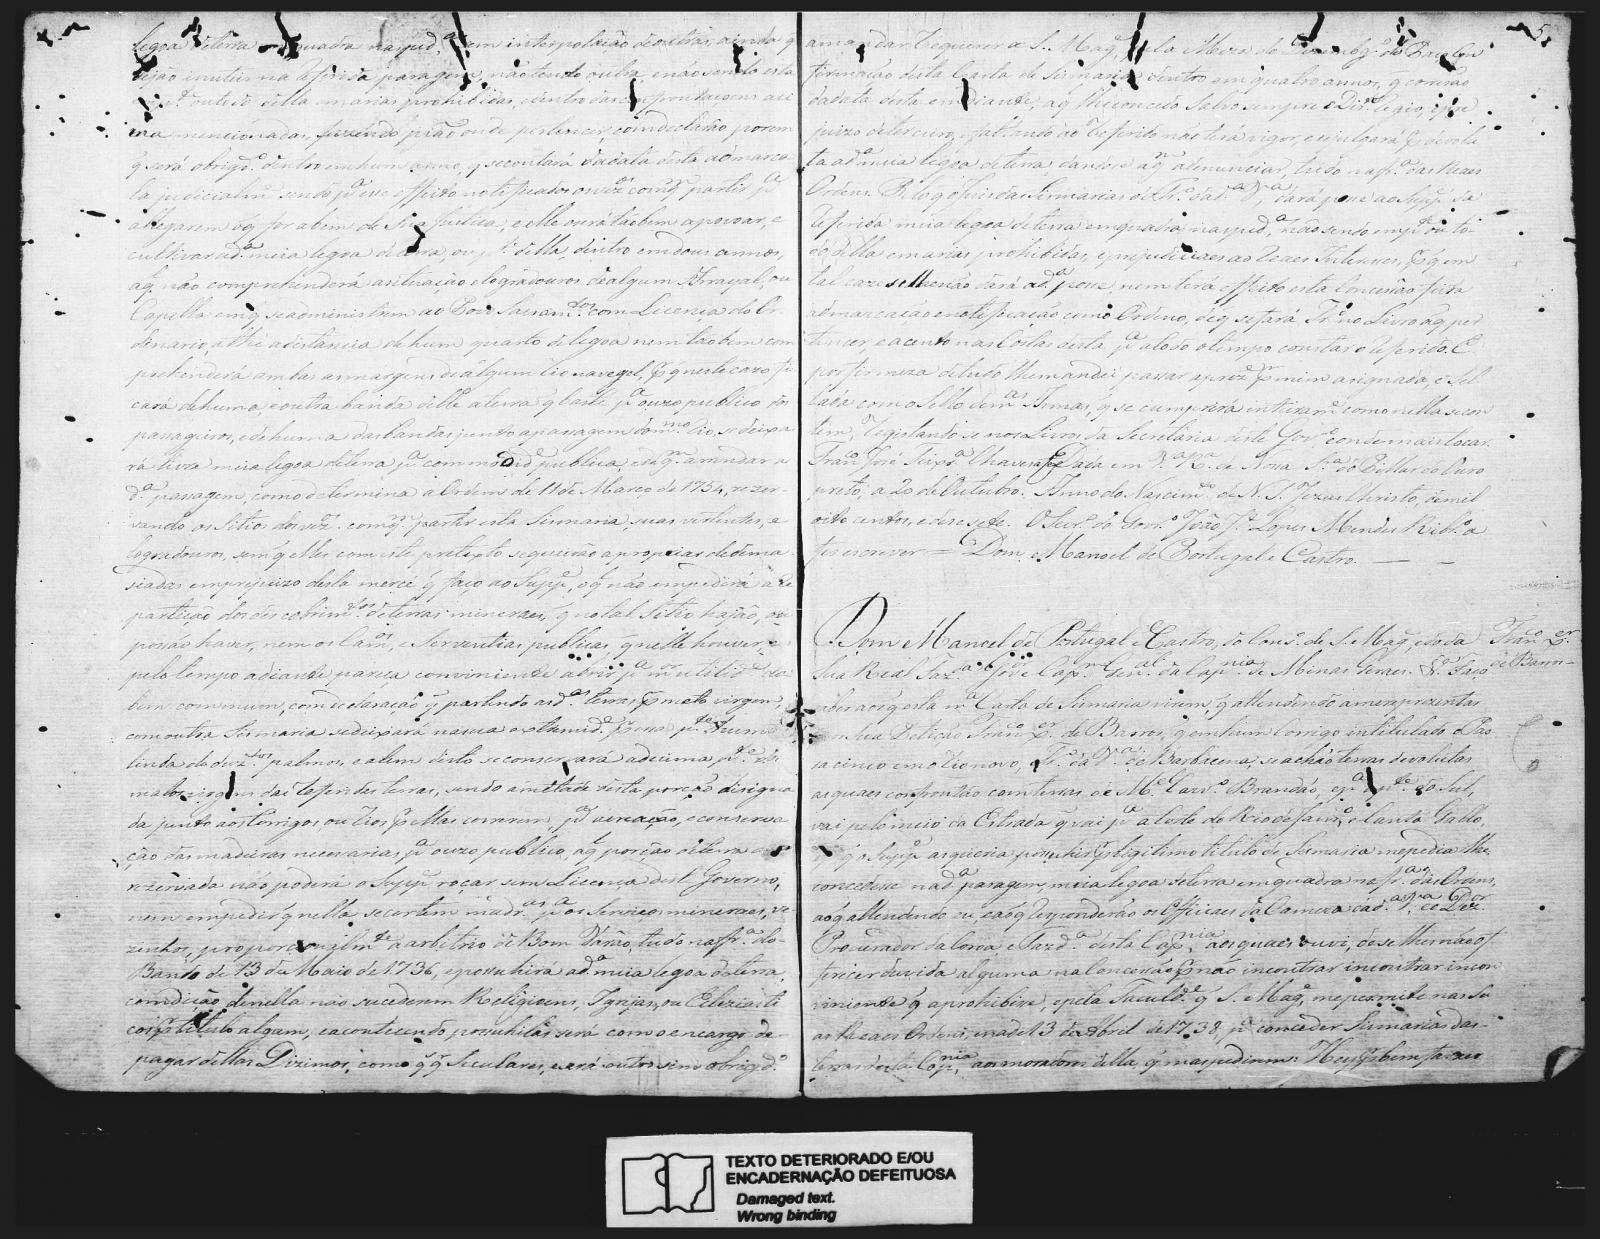 legoa de terra em quadra na sped.ª sem interpolação de outras, ainda q
sejão inuteis na referida paragem, não tendo outra, e não sendo esta
outodo della em arias prohibidas, e dentro das confrontaçoens aci
ma mencionadas, fazendo pião onde pertencer, com declarão porem
q̃ será obrig.º dentro em hum anno, q̃ se contará da data desta a demarca
la judicialm.e sendo p.ª esse effeito notificados os viz.os com q.m partir p.ª
allegarem o q̃ for a bem de sua Justiça, e elle o será tãobem a povoar, e
cultivar a d.ª meia legoa de terra, ou p.te della, dentro em dous annos,
a q̃ não comprehenderá a situação e logradouros de algum Arrayal, ou
Capella em q̃ se administrem ao Povo Sacram.tos com Licença do Or
dinario, athé a distancia de hum quarto de legoa nem tãobem com
prehenderá ambas as margens de algum rio navegel, p.r q̃ neste cazo fi
cará de huma, e outra banda delle a terra q̃ baste p.ª o uzo publico dos
passageiros, e de huma das bandas junto a passagem do m.mo rio, se deixa
rá livre meia legoa de terra p.ª commodid.e publica, e de q.m arrendar a
d.ª passagem, como determina a Ordem de 11 de Março de 1754, rezer-
vando os Sitios dos viz.os com q.m partir esta Sesmaria, suas vertentes, e
logradouros, sem q̃ elles com este pretexto se queirão apropriar de dema-
siadas em prejuizo desta mercê q̃ faço ao Supp.e, o q̃ não empedirá a re
partição dos descobrim.tos de terras mineraes, q̃ no tal Sitio hajão, ou
possão haver, nem os Cam.os, e Serventias publicas, q̃ nelle houver, e
pelo tempo adiante pareça conveniente abrir p.ª m.or utilid.e do
bem commum, com declaração q̃ partindo as d.as terras p.r mato virgem,
com outra Sesmaria se deixará na sua extremid.e p.r essa p.te hum
linda de duz.tos palmos, e alem disto se conservará a decima p.te dos
matos virgens das referidas terras, sendo ametade desta porção design
da junto aos Corrigos, ou rios q̃ p.r ellas correrem p.ª creação, e conserva
ção das madeiras necessarias p.ª o uzo publico, a q̃ porção de terra
rezervada não poderá o Supp.e roçar sem Licença deste Governo,
nem empedir q̃ nella se cortem madr.as p.ª os serviços mineraes, ve-
zinhos, proporcionalm.te a arbitrio de Bom Varão, tudo na fr.ª do
Bando de 13 de Maio de 1736, e possuhirá a d.ª meia legoa de terra,
condição de nella não sucederem Religioens, Igrejas, ou Eclezíasti
cos p.r titulo algum, e acontecendo possuhilas será com o encargo de
pagar dellas Dizimos, como q.q̃ Seculares, e será outro sim obrigd.º
5
a mandar requerer a S. Mag.e, pela Meza do Dezembg.º do Paço Con
firmação desta Carta de Sismaria dentro em quatro annos, q̃ correrão
da data desta em diante, a q̃ lhe concedo salvo sempre o Dir.to regio, e pre
juizo de terceiro, e faltando ao referido não terá vigor, e se julgará p.r devolu
ta a d.ª meia legoa de terra, dando-se a q.m a denunciar, tudo na fr.ª das Reaes
Ordens. Pelo q̃ o Juiz das Sesmarias do Tr.º da d.ª V.ª, dará posse ao Supp.e da
referida meia legoa de terra em quadra na sped.ª, não sendo em p.te ou to
do della em arias prohibidas, e prejudiciaes aos Reaes Interesses, p.r q̃ em
tal cazo se lhe não dará a d.ª posse, nem terá effeito esta Concessão feita
a demarcação e notificação como Ordeno, de q̃ se fará Tr.º no Livro a q̃ per
tencer, e acento nas Costas desta p.ª a todo o tempo constar o referido. E
por firmeza de tudo lhe mandei passar a prez.e p.r mim asignada, e Sel
lada com o Sello de m.as Armas, q̃ se cumprirá inteiram.e como nella se con
tem, registando-se nos Livros da Secretaria deste Gov.º e onde mais tocar.
Fran.co José Teixr.ª Chaves a fez Dada em V.ª R.ª de Nossa Sr.ª do Pillar do Ouro
preto, a 20 de Outubro. Anno do Nascim.to de N. S. Jezus Christo, de mil
oito centos, e dezesete. O Secr.º do Gov.º João J.e Lopes Mendes Ribr.º a
fez escrever = Dom Manoel de Portugal e Castro. — —
Dom Manoel de Portugal e Castro, do Cons.º de S. Mag.e, e do da Fran.co X.er
Sua Real Faz.ª Gov.or e Cap.m Gen.al da Cap.nia de Minas Geraes. &.ª Faço de Barros
saber aos q̃ esta m.ª Carta de Sismaria virem, q̃ attendendo a me reprezentar
em sua Petição Fran.co X.er de Barros, q̃ em hum Corrigo intitulado o Pas
sa cinco em o rio novo, Tr.º da V.ª de Barbacena se achão terras devolutas
as quaes confrontão com terras de M.el Carv.º Brandão, e p.ª p.te do Sul,
vai pelo meio da Estrada q̃ vai p.ª a Corte do Rio de Janr.º, e Canta Gallo,
e q̃ o Supp.e as queria possuhir p.r legitimo titulo de Sesmaria me pedia lhe
concedesse na d.ª paragem, meia legoa de terra em quadra na fr.ª das Ordens,
ao q̃ attendendo eu, e ao q̃ responderão os Officiaes da Camera da d.ª V.ª e o Dez.or
Procurador da Coroa, e Fazd.ª desta Cap.nia, aos quaes ouvi, de se lhe não of
ferecer duvida alguma na Concessão p.r não incontrar incontrar incon
viniente q̃ a prohibisse, e pela faculd.e q̃ S. Mag.e me permite nas su
as Reaes Ordens, e na de 13 de Abril de 1738, p.ª conceder Sismarias das
terras desta Cap.nia, aos moradores della, q̃ mas pedirem: Hey p.r bem fazer
TEXTO DETERIORADO E/OU
ENCADERNAÇÃO DEFEITUOSA
Damaged text.
Wrong binding